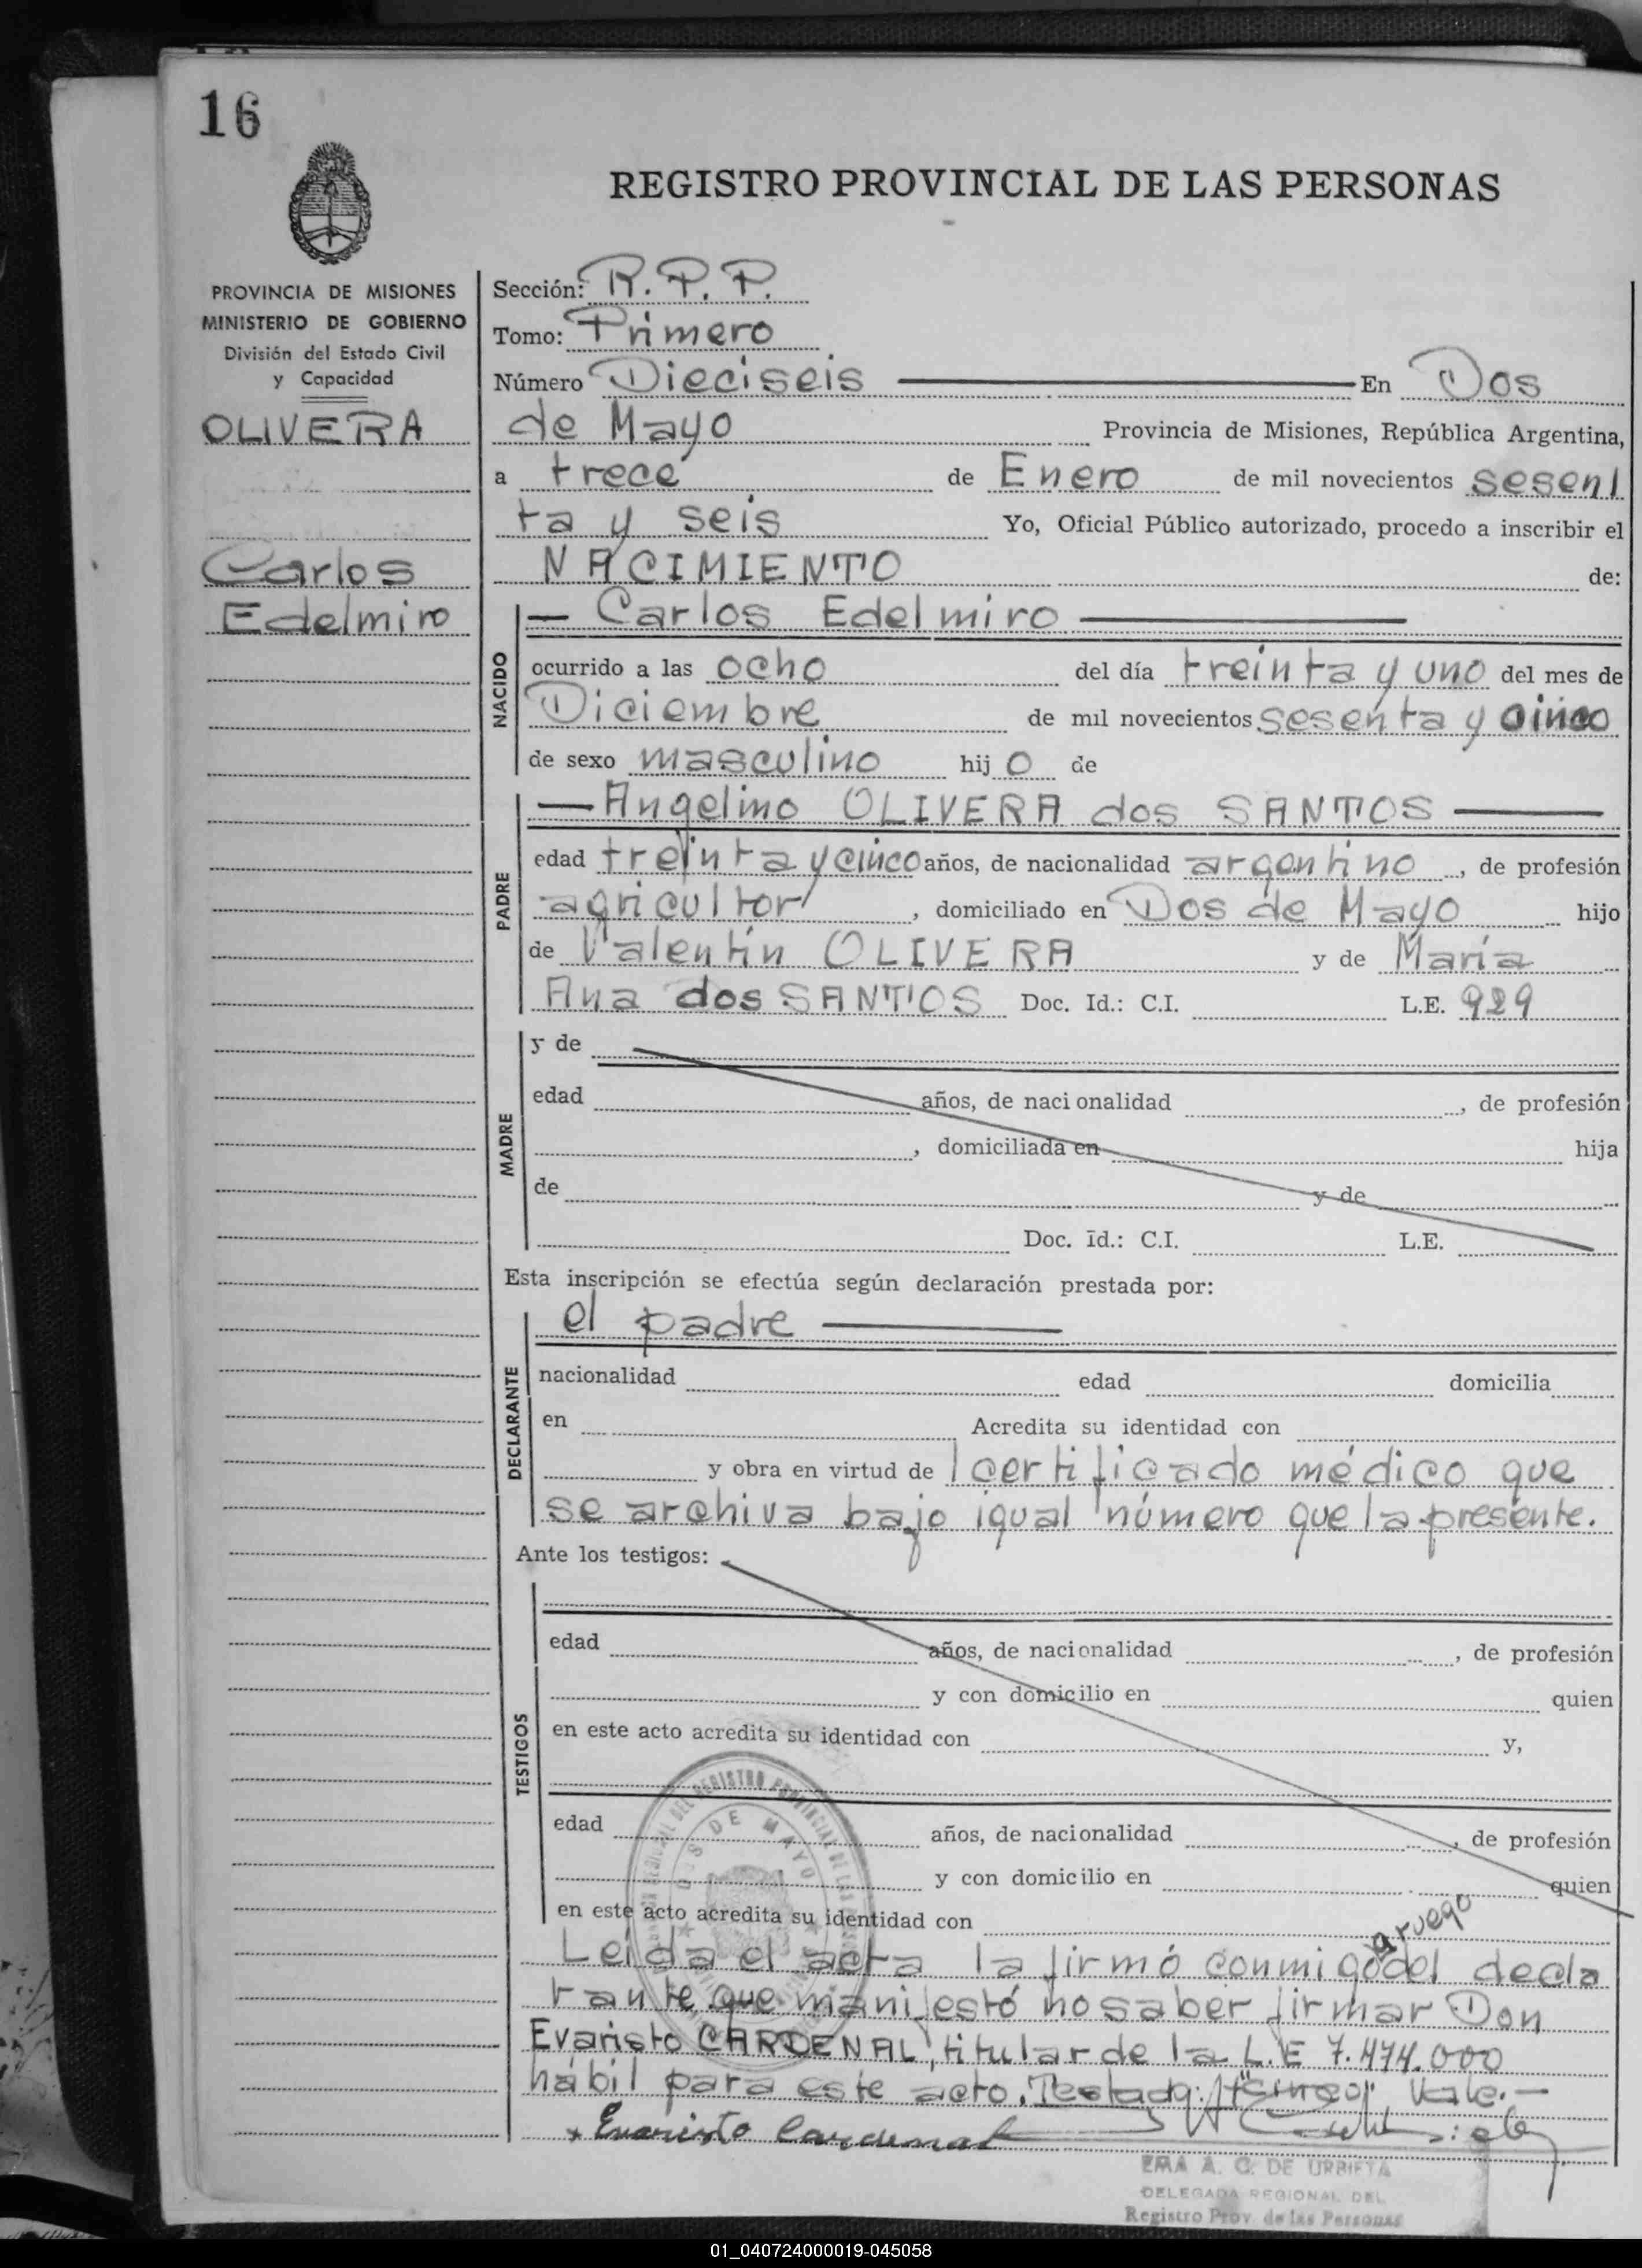 16
REGISTRO PROVINCIAL DE LAS PERSONAS
PROVINCIA DE MISIONES
MINISTERIO DE GOBIERNO
División del Estado Civil
y Capacidad
OLIVERA
Carlos
Edelmiro
Sección: R. P. P.
Tomo: Primero
Número Dieciseis En Dos
de Mayo Provincia de Misiones, República Argentina,
a trece de Enero de mil novecientos sesen
ta y seis Yo, Oficial Público autorizado, procedo a inscribir el
NACIMIENTO de:
— Carlos Edelmiro —
NACIDO
ocurrido a las ocho del día treinta y uno del mes de
Diciembre de mil novecientos sesenta y cinco
de sexo masculino hij o de
— Angelino OLIVERA dos SANTOS —
PADRE
edad treinta y cinco años, de nacionalidad argentino, de profesión
agricultor, domiciliado en Dos de Mayo hijo
de Valentín OLIVERA y de María
Ana dos SANTOS Doc. Id.: C.I. L.E. 929
MADRE
y de
edad años, de nacionalidad, de profesión
, domiciliada en hija
de y de
Doc. Id.: C.I. L.E.
Esta inscripción se efectúa según declaración prestada por:
el padre —
DECLARANTE
nacionalidad edad domicilia
en Acredita su identidad con
y obra en virtud de l certificado médico que
se archiva bajo igual número que la presente.
Ante los testigos:
TESTIGOS
edad años, de nacionalidad, de profesión
y con domicilio en quien
en este acto acredita su identidad con y,
edad años, de nacionalidad, de profesión
y con domicilio en quien
en este acto acredita su identidad con
a ruego
Leída el acta la firmó conmigo del decla
rante que manifestó no saber firmar Don
Evaristo CARDENAL, titular de la L.E 7.474.000
hábil para este acto. Testado: Vale.—
Evaristo Cardenal
DOS DE MAYO
A. C. DE URBIETA
DELEGADA REGIONAL DEL
Registro Prov. de las Personas
01_040724000019-045058